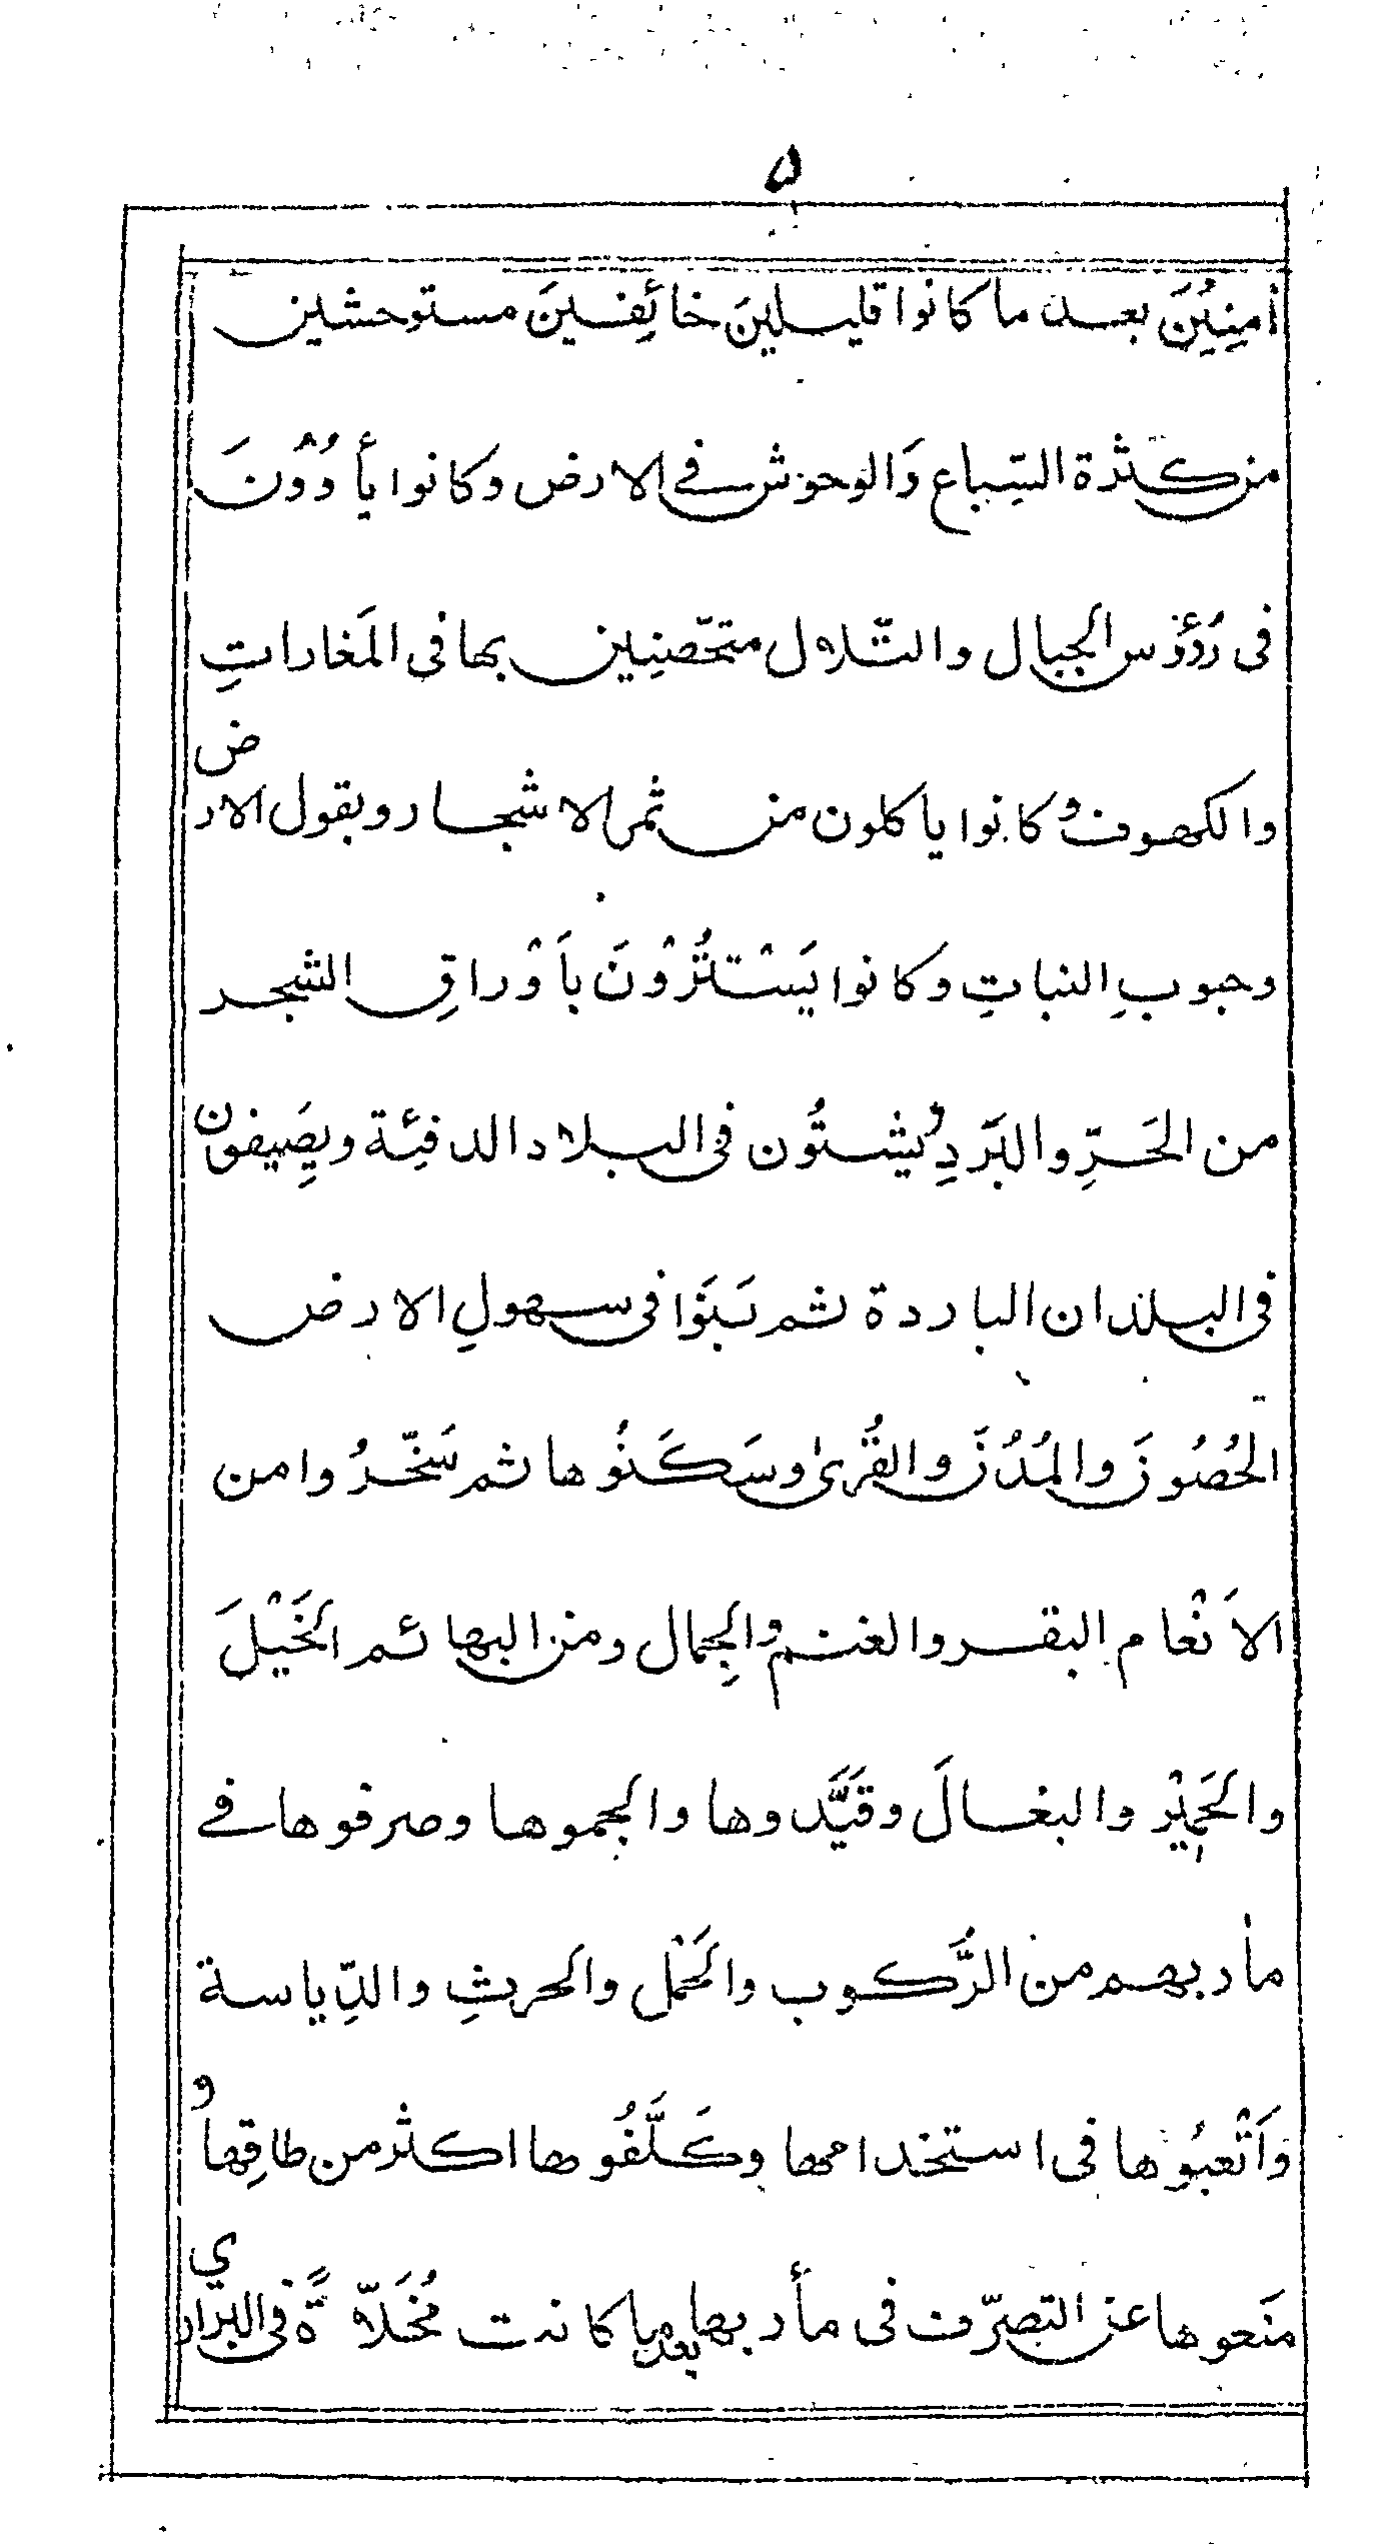 ۵
اٰمِنِيْنَ بعد ما كانوا قليلينَ خائِفينَ مستوحشين
من كثرة السِّباع وَالوحوش فے الارض وكانوا يأوُوْنَ
فى رُؤس الجبال والتّلال متحّصنِين بها فى المَغاراتِ
والكهوف وكانوا ياكلون من ثمر الاشجار وبقول الارض
وحبوبِ النباتِ وكانوا يَسْتتُرْوْنَ بأَوْراقِ الشجر
من الحَرِّ والبَردِ ويشتُون فى البلاد الدفئِة ويصِيفون
فى البلدان الباردة ثم بَنَوْا فى سهولِ الارض
الحُصُونَ والمُدُنَ والقُرىٰ وسَكَنُوها ثم سَخّرُوا من
الاَنْعام البقر والغنم والجِمال ومن البهائم الخَيْلَ
والحَمِيْر والبغالَ وقَيَّدوها والجموها وصرفوها فے
مأربهم من الرُّكوب والحَمْل والحرثِ والدِّياسة
وَاَتْعبُوها فى استخدامها وكَلَّفُوها اكثر من طاقِتها و
منَعوها عن التصرّف فى مأربها بعد ما كانت مُخَلاّةً فى البرارى